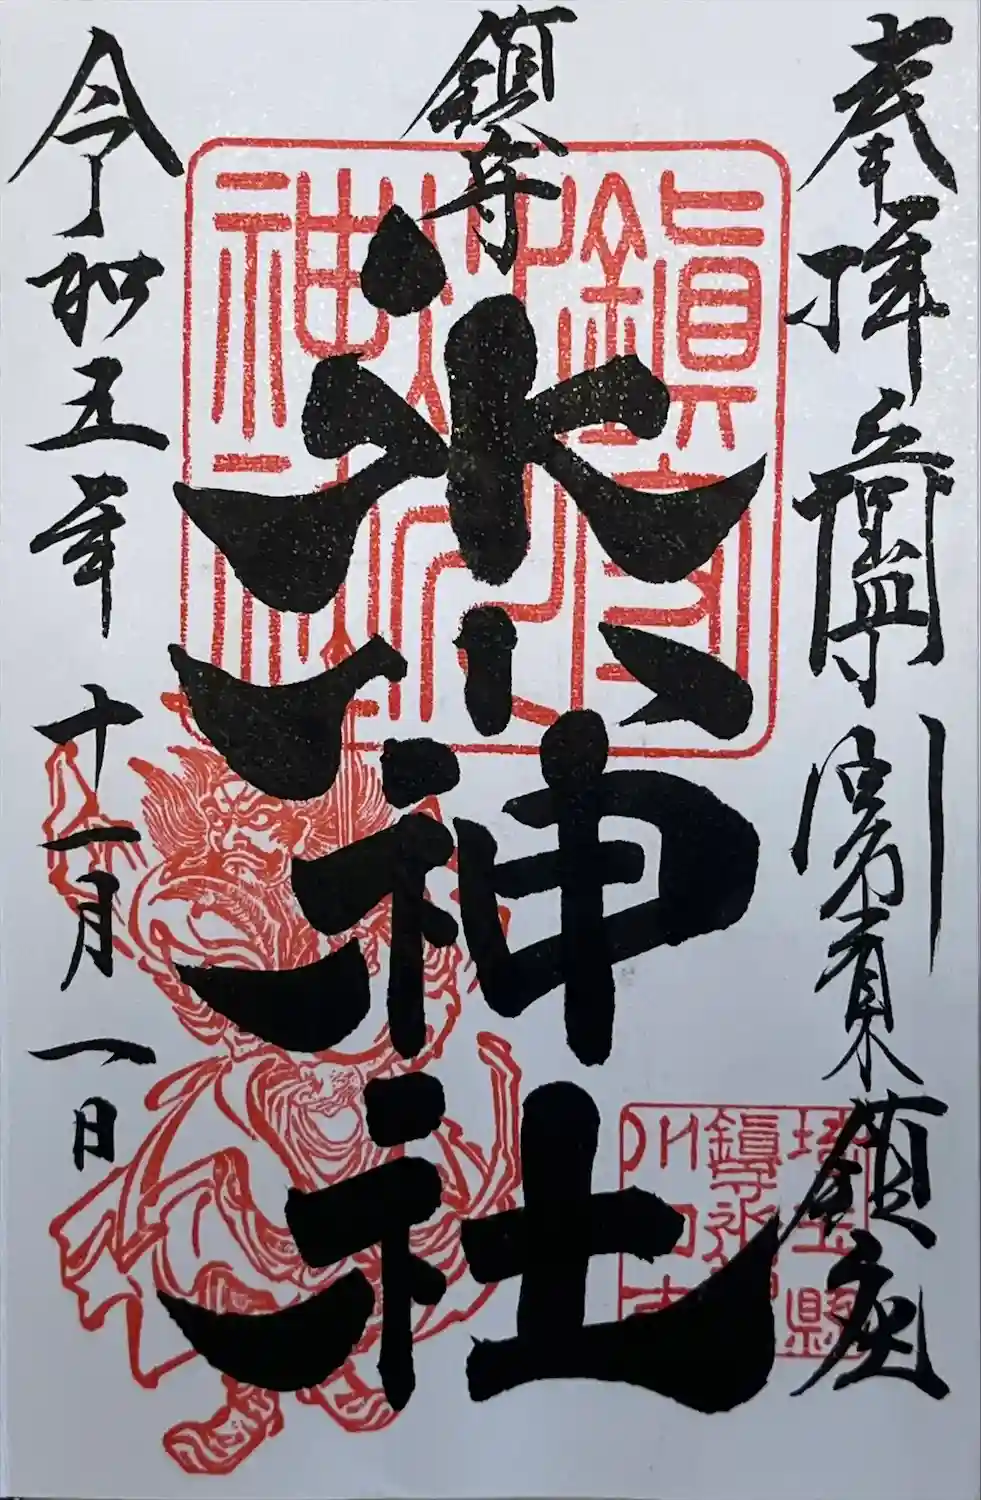 奉拝 川口 青木 鎮座
鎮守
氷川神社
令和五年十一月一日
鎮守
氷川
神社
埼玉縣
鎮守氷川
川口市